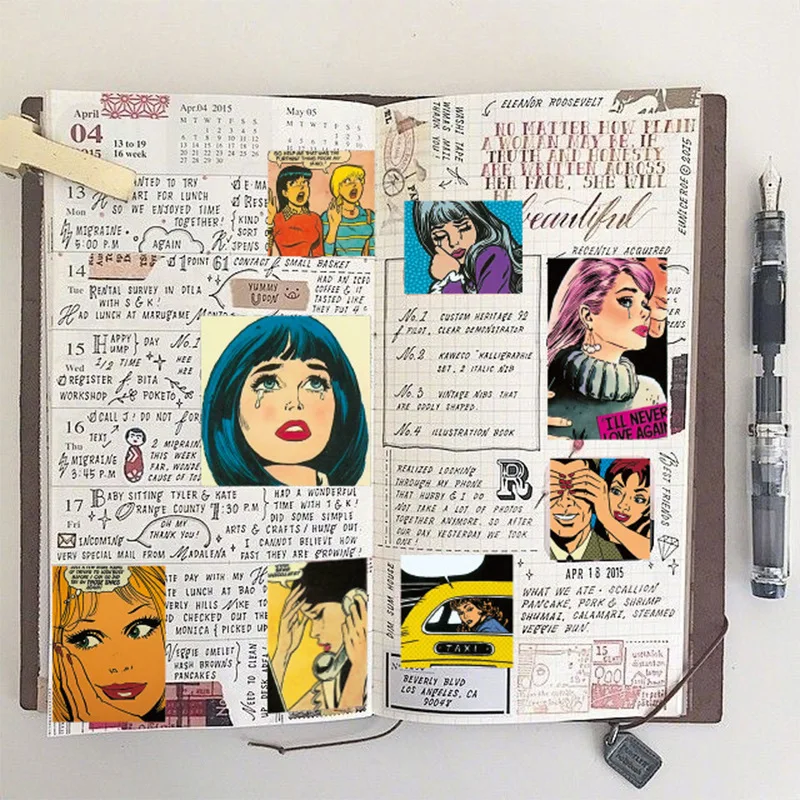 April
04
2015
13 to 19
16 week
Apr.04 2015
May 05
13
Mon
WANTED TO TRY
FOR LUNCH
SO WE ENJOYED TIME
TOGETHER!
MIGRAINE
5:00 P.M
AGAIN
KIND
SORT
JPENS
14
Tue
1 POINT 61 CONTACT & SMALL BASKET
RENTAL SURVEY IN DTLA
WITH S & K!
HAD LUNCH AT MARUGAME
YUMMY
UDON
HAD AN ICED
COFFEE & IT
TASTED LIKE
THEY PUT
15
Wed
HAPPY
HUMP
DAY
1/2 TIME
No.1
HEE
HEE
REGISTER & BITA
WORKSHOP
POKETO
16
Thu
CALL J! DO NOT
TEXT
MIGRAINE
3:45 P.M
2 MIGRAIN
THIS WEEK
FAR, WONDE
CAUSE OF
17
Fri
BABY SITTING TYLER & KATE
ORANGE COUNTY 1:30 P.M
HAD A WONDERFUL
TIME WITH T & K!
DID SOME SIMPLE
ARTS & CRAFTS / HUNG OUT.
I CANNOT BELIEVE HOW
FAST THEY ARE GROWING!
INCOMING
OH MY
THANK YOU!
VERY SPECIAL MAIL FROM MADALENA
TE DAY WITH MY
TE LUNCH AT BAO
VERLY HILLS NIKE TO
D CHECKED OUT THE
MONICA PICKED UP
VEGGIE OMELET
HASH BROWN'S
PANCAKES
NEED TO CLEAN
UP DESK
WASHI TAPE &
MAIL
THANK YOU
ELEANOR ROOSEVELT
NO MATTER HOW PLAIN
A WOMAN MAY BE, IF
TRUTH AND HONESTY
ARE WRITTEN ACROSS
HER FACE, SHE WILL
BE
beautiful
EUNICEROE © 2015
RECENTLY ACQUIRED
No.1 CUSTOM HERITAGE 92
PILOT. CLEAR DEMONSTRATOR
No.2 KAWECO "KALLIGRAPHIE
SET, 2 ITALIC NIB
No.3 VINTAGE NIBS THAT
ARE ODDLY SHAPED.
No.4 ILLUSTRATION BOOK
I'LL NEVER
LOVE AGAIN
REALIZED LOOKING
THROUGH MY PHONE
THAT HUBBY & I DO
NOT TAKE A LOT OF PHOTOS
TOGETHER ANYMORE. SO AFTER
OUR DAY YESTERDAY WE TOOK
ONE!
R
BEST FRIENDS
DIM SUM HOUSE
TAXI
BEVERLY BLVD
LOS ANGELES, CA
90048
APR 18 2015
WHAT WE ATE - SCALLION
PANCAKE, PORK & SHRIMP
SHUMAI, CALAMARI, STEAMED
VEGGIE BUN.